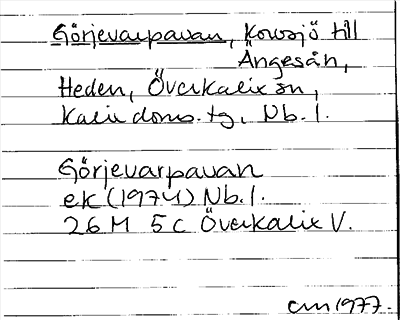 Görjevarpavan, korvsjö till
Ängesån,
Heden, Överkalix sn,
Kalix doms. tg, Nb. l.
Görjevarpavan
ek (1974) Nb. l.
26 M 5 c Överkalix V.
cm 1977.